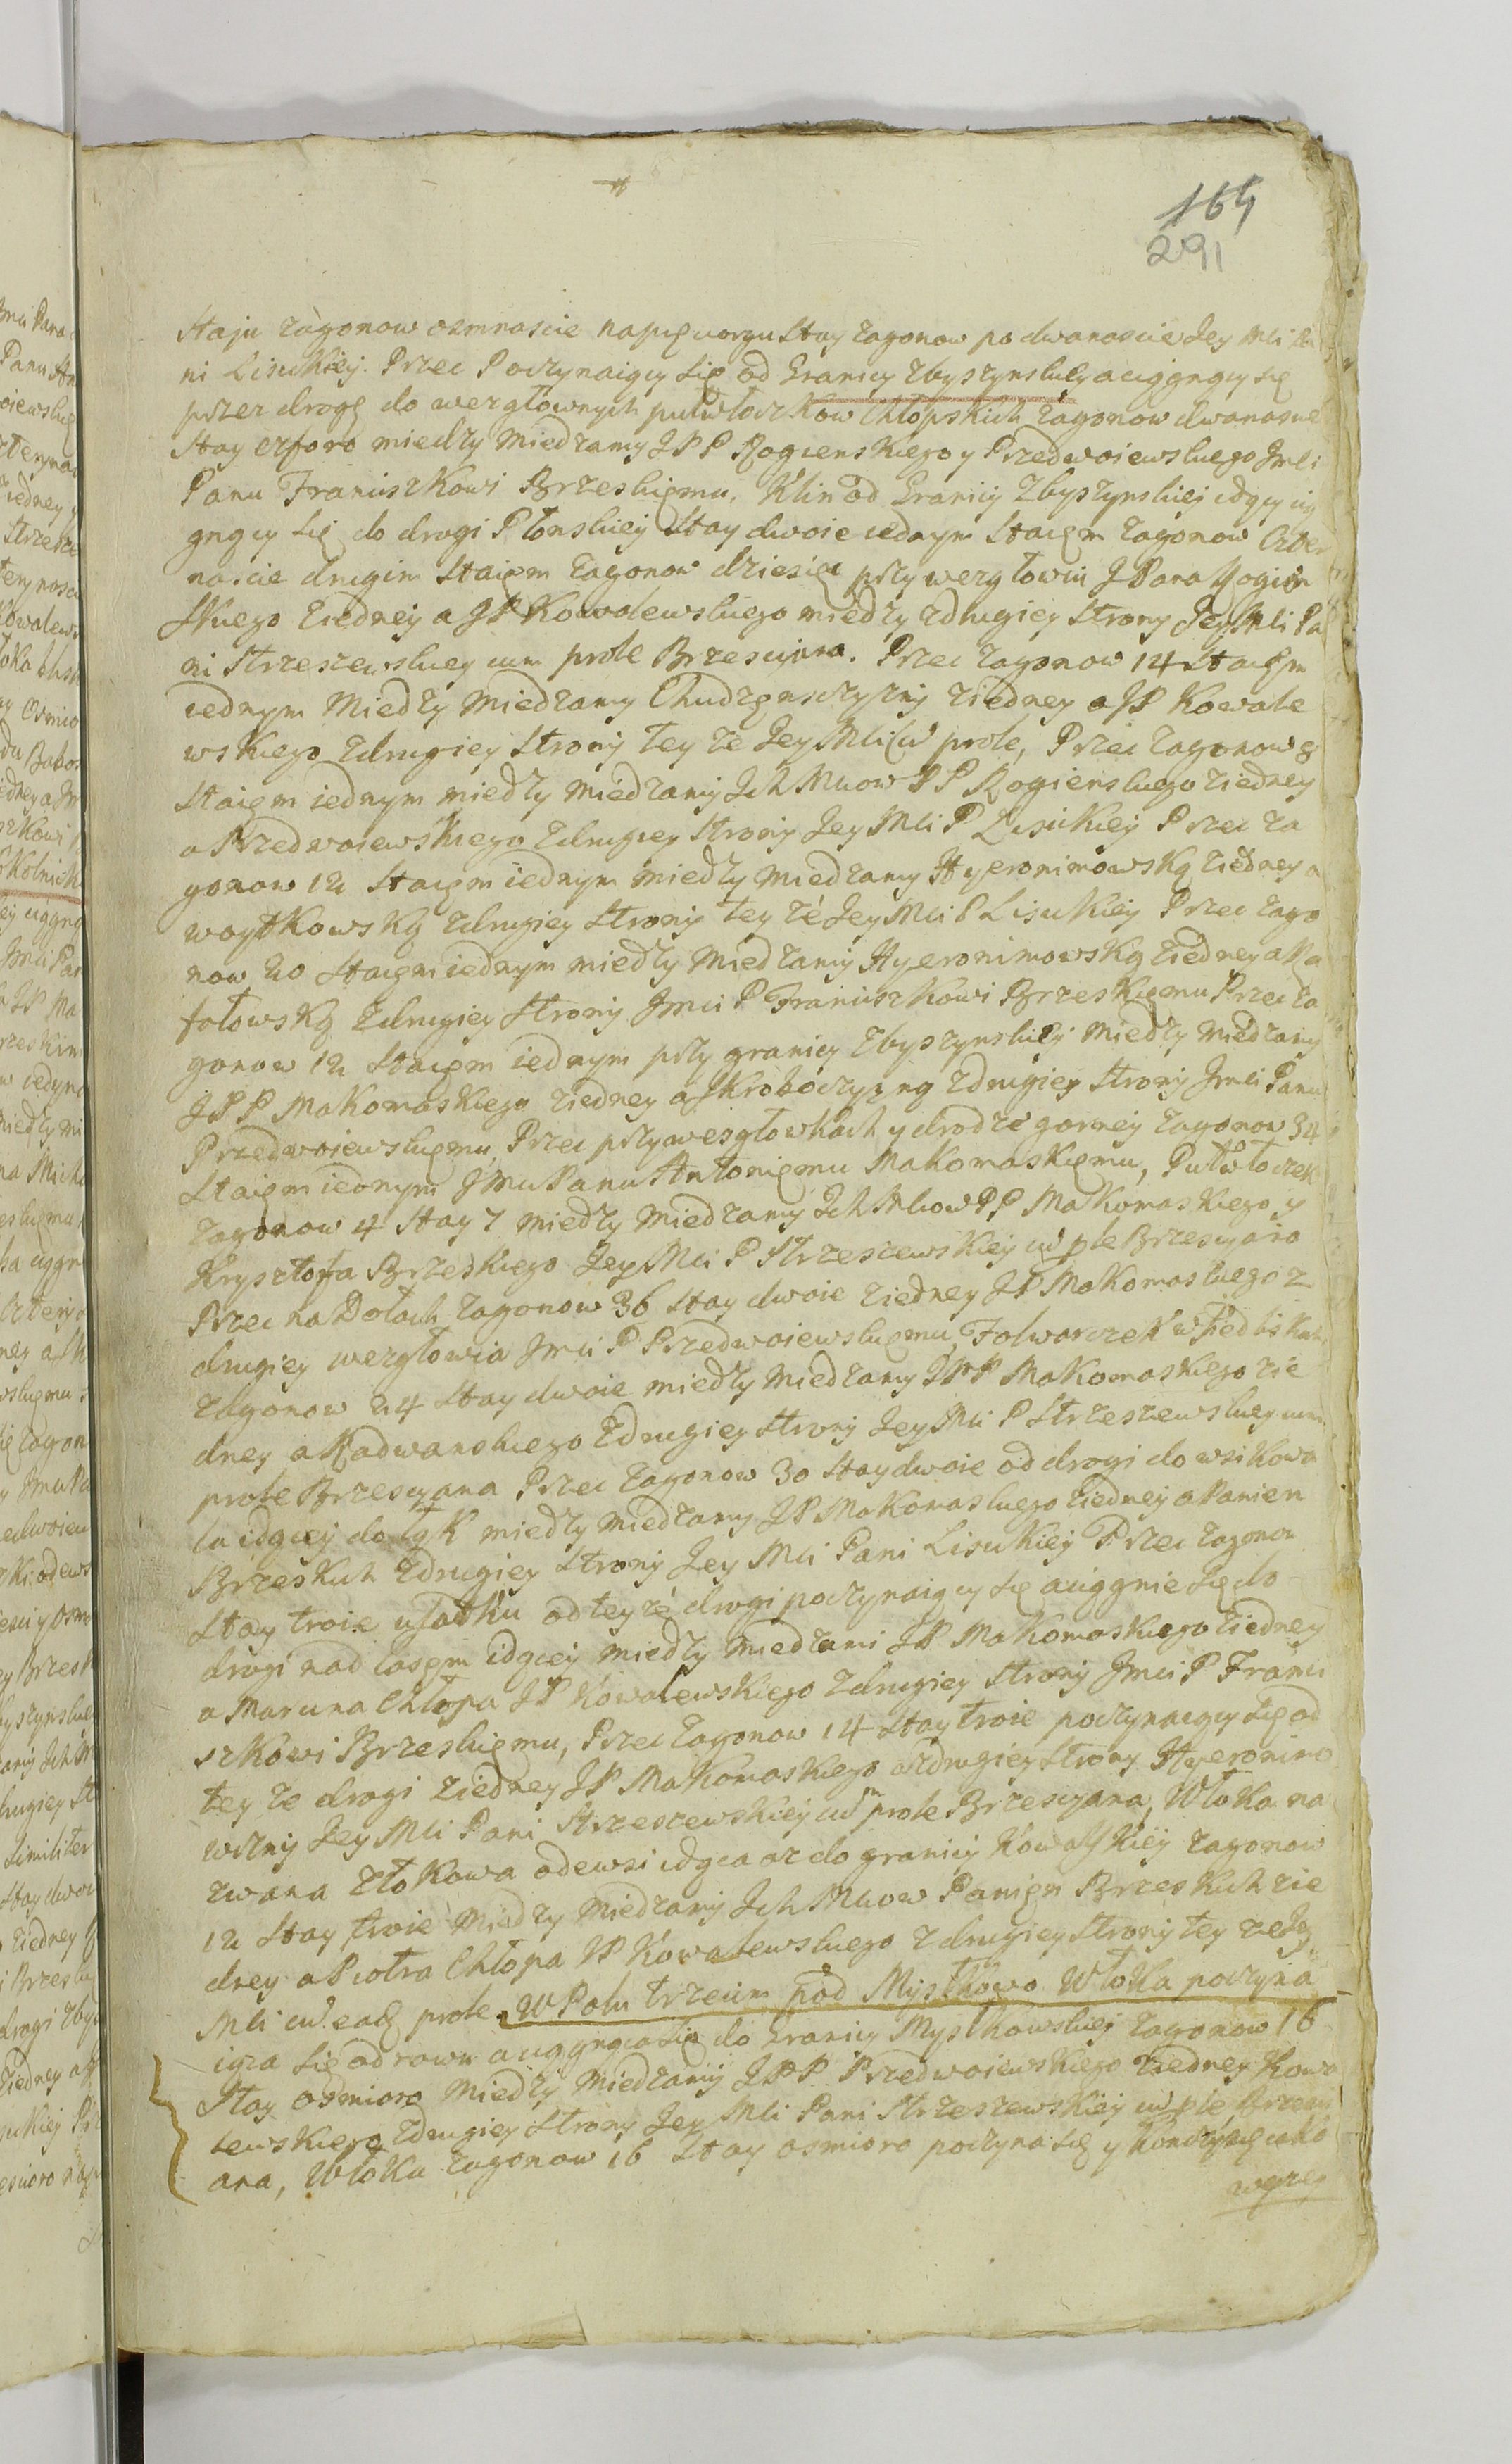 164
291
Staju zagonow osmnascie na pięciorgu Stay zagonow po dwanascie Jey Mci Pa
ni Lisickiey. Przec Poczynaiący się od Granicy Zbyszynskiey a ciągnący się
przez drogę do wezgłownych pułwłoczkow Chłopskich zagonow dwanascie
Stay czforo miedzy Miedzamy JPP Rogienskiego y Przedwoiewskiego Jmci
Panu Franciszkowi Brzeskięmu, Klin od Granicy Zbyszynskiey idący cią
gnący się do drogi Płonskiey Stay dwoie iednym Staięm zagonow Czter
nascie drugim Staięm zagonow dziesięc przy wezgłowiu JPana Rogien
skiego ziedney a JP Kowalewskiego miedzy zdrugiey Strony Jey Mci Pa
ni Strzeszewskiey cum prole Brzesciana. Przec zagonow 14 Staięm
iednym Miedzy Miedzamy Chudzęnsczyzny ziedney a JP Kowale
wskiego zdrugiey Strony tey ze Jey Mci cũ prole, Przec zagonow 8
Staięm iednym miedzy Miedzamy Ich Mciow PP Rogienskiego ziedney
a Przedwoiewskiego zdrugiey Strony Jey Mci P Lisickiey Przec za
gonow 12 Staięm iednym miedzy miedzamy Hyeronimowską ziedney a
woytkowską zdrugiey Strony tey ze Jey Mci P Lisickiey Przec zago
now 20 Staięm iednym miedzy Miedzamy Hyeronimowską ziedney a Ra
fałowską zdrugiey Strony Jmci P Franciszkowi Brzeskięmu Przec za
gonow 12 Staięm iednym przy granicy Zbyszynskiey miedzy miedzamy
JPP Makomaskiego ziedney a Skroboczyzną zdrugiey Strony Jmci Panu
Przedwoiewskięmu, Przec przywezgłowkach y drodze gorney zagonow 34
Staięm iednym Jmci Panu Antonięmu Makomaskięmu, Pułwłoczek
zagonow 4 Stay 7 miedzy Miedzamy Ich Mciow PP Makomaskiego y
Krysztofa Brzeskiego Jey Mci P Strzeszewskiey cũ ple Brzesciana
Przec na Dołach zagonow 36 Stay dwoie ziedney JP Makomaskiego z
drugiey wezgłowia Jmci P Przedwoiewskięmu, Folwarczek w Siedliskach
zagonow 24 Stay dwoie miedzy miedzamy JPP Makomaskiego zie
dney a Radwanskiego zdrugiey Strony Jey Mci P Strzeszewskiey cum
prole Brzesciana Przec zagonow 30 Stay dwoie od drogi do wsi Kowa
la idącey do łąk miedzy miedzamy JP Makomaskiego ziedney a Panien
Brzeskich zdrugiey Strony Jey Mci Pani Lisickiey Przec zagonow
Stay troie usadku od teyze drogi poczynaiący się a ciągnie się do
drogi nad lasęm idącey miedzy miedzami JP Makomaskiego ziedney
a Marcina Chłopa JP Kowalewskiego zdrugiey Strony Jmci P Franci
szkowi Brzeskięmu, Przec zagonow 14 Stay troie poczynaiący się od
tey ze drogi ziedney JP Makomaskiego azdrugiey Strony Hyeronimo
wizny Jey Mci Pani Strzeszewskiey cũ prole Brzesciana, Włoka na
zwana Złokowa odewsi idąca az do granicy Kowalskiey zagonow
12 Stay troie Miedzy Miedzamy Ich Mciow Panięn Brzeskich zie
dney a Piotra Chłopa JP Kowalewskiego zdrugiey Strony tey zeJey
Mci cũ eadę prole. W Polu trzecim pod Mystkowo Włoka poczyna
iąca się od rowu a ciągnąca się do Granicy Mystkowskiey zagonow 16
Stay osmioro Miedzy Miedzamy JPP Przedwoiewskiego ziedney Kowa
lewskiego zdrugiey Strony Jey Mci Pani Strzeszewskiey cũ ple Brzesci
ana, Włoka zagonow 16 Stay osmioro poczyna się y konczy się iako
wyzey